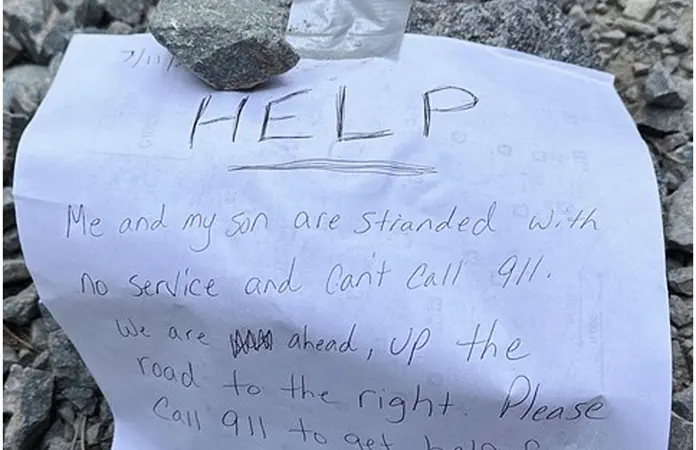 7/11/
HELP
Me and my son are stranded with
no service and can't call 911.
We are ahead, up the
road to the right. Please
call 911 to get help